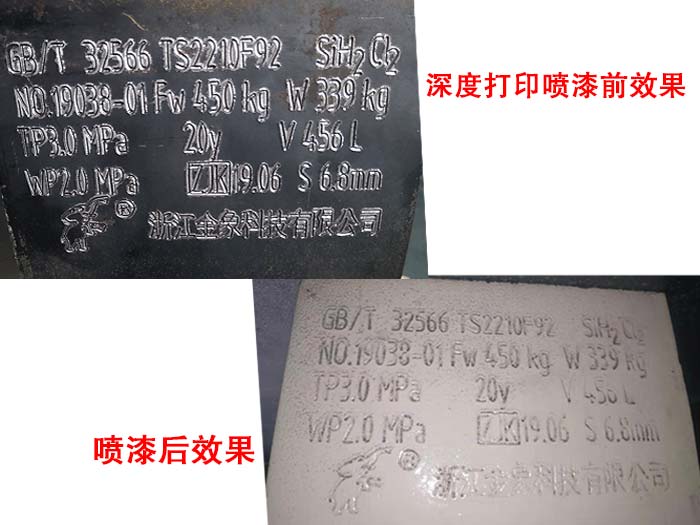 GB/T 32566 TS2210F92 SiH2Cl2
NO.19038-01 Fw 450 kg W 339 kg
TP3.0 MPa 20y V 456 L
WP2.0 MPa ZJK 19.06 S 6.8mm
® 浙江金象科技有限公司
深度打印喷漆前效果
GB/T 32566 TS2210F92 SiH2Cl2
NO.19038-01 Fw 450 kg W 339 kg
TP3.0 MPa 20y V 456 L
WP2.0 MPa ZJK 19.06 S 6.8mm
® 浙江金象科技有限公司
喷漆后效果